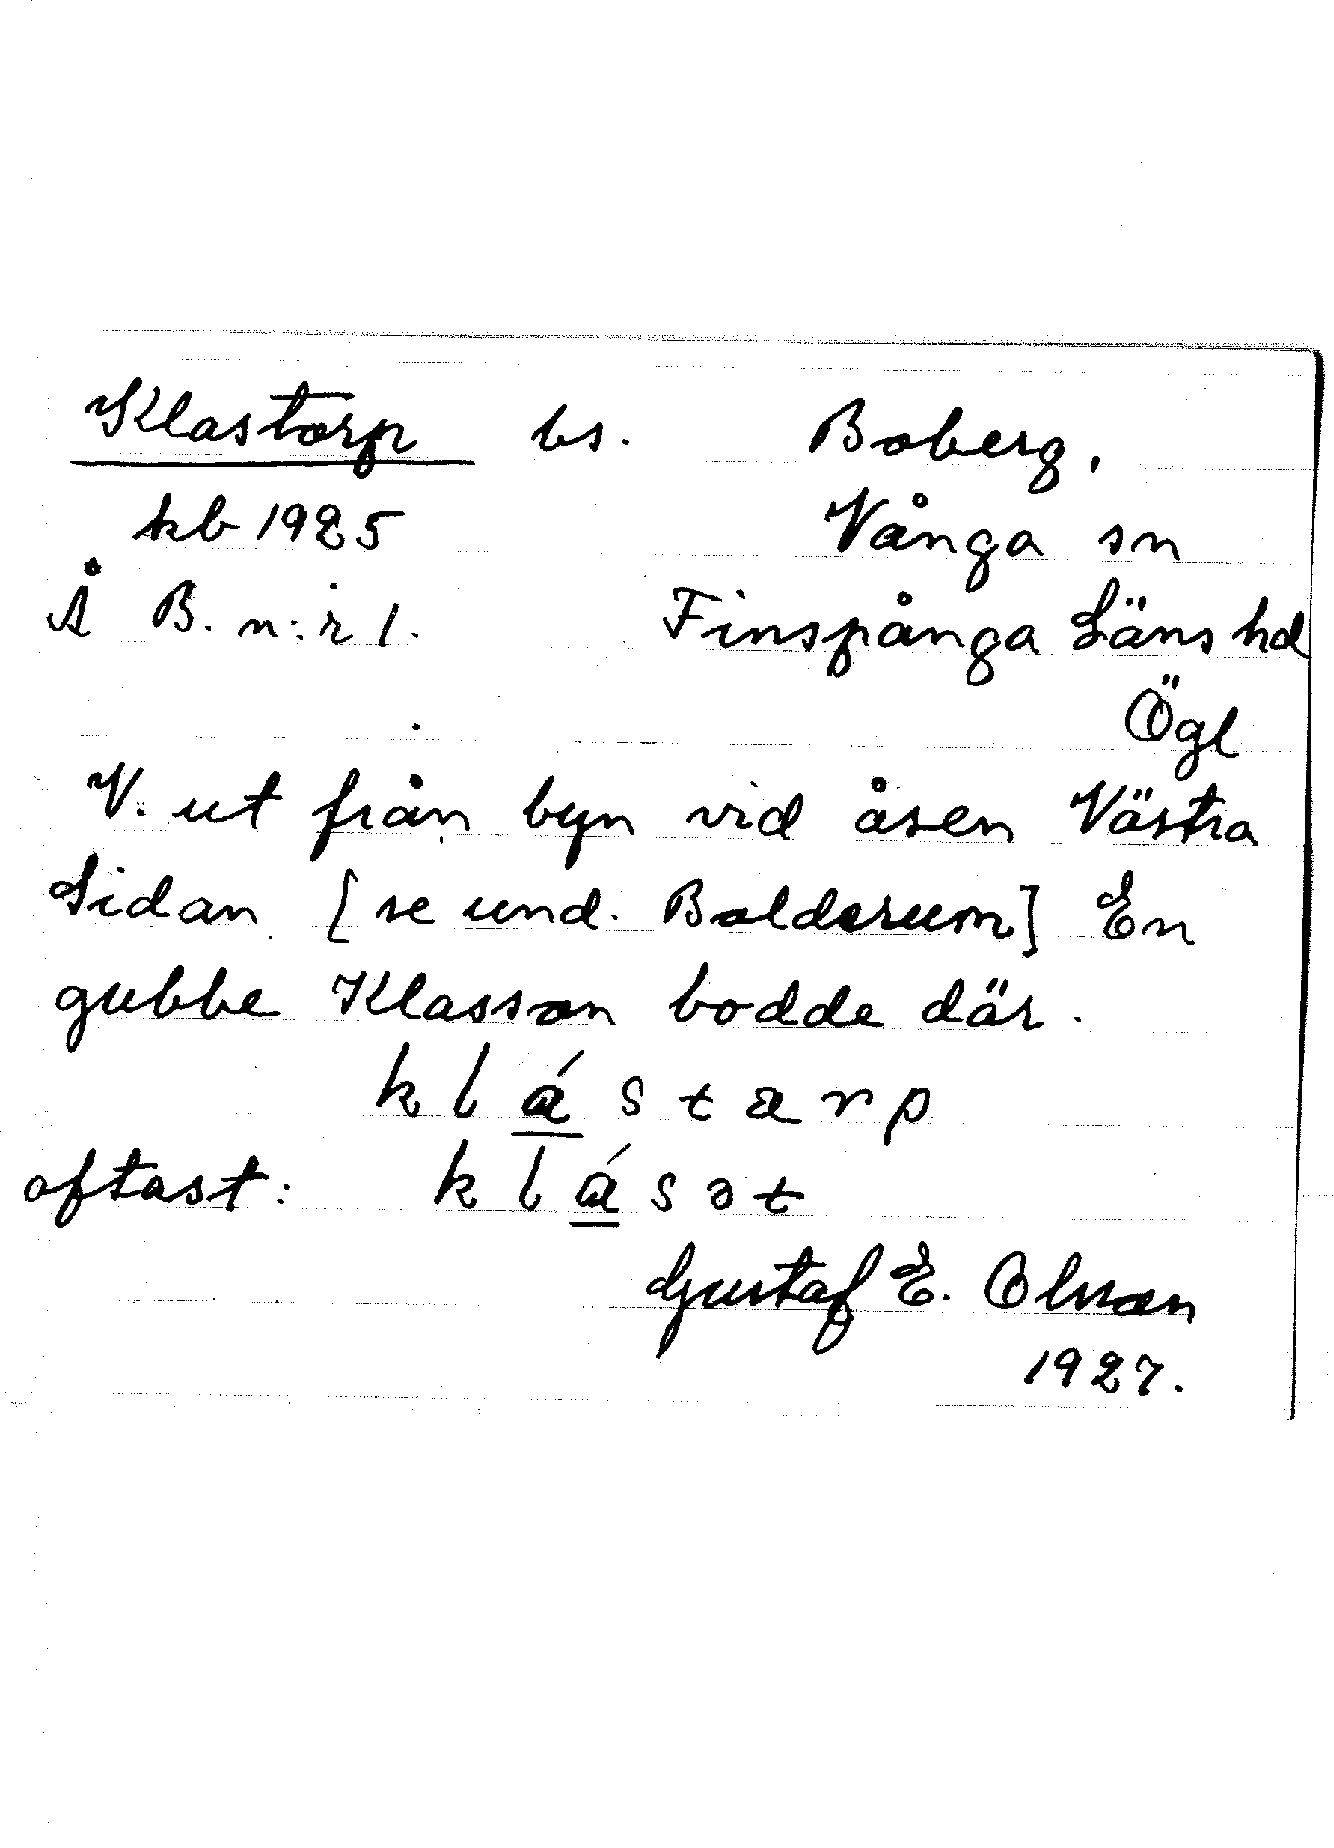 Klastorp bs. Boberg,
kb 1925 Vånga sn
Å B. n:r 1. Finspånga Läns hd
Ögl
V. ut från byn vid åsen Västra
Sidan [se und. Bolderum] En
gubbe Klasson bodde där.
klá̱starp
oftast: klá̱sət
Gustaf E. Olsson
1927.